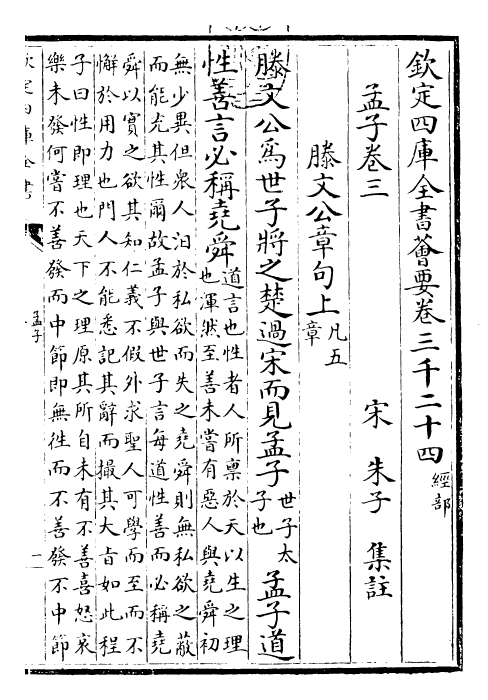 欽定四庫全書薈要卷三千二十四 經部
孟子卷三
宋 朱子 集註
滕文公章句上 凡五章
滕文公為世子將之楚過宋而見孟子 世子太子也 孟子道
性善言必稱堯舜 道言也性者人所稟於天以生之理
也渾然至善未嘗有惡人與堯舜初
無少異但衆人汨於私欲而失之堯舜則無私欲之蔽
而能充其性爾故孟子與世子言每道性善而必稱堯
舜以實之欲其知仁義不假外求聖人可學而至而不
懈於用力也門人不能悉記其辭而撮其大旨如此程
子曰性即理也天下之理原其所自未有不善喜怒哀
樂未發何嘗不善發而中節即無往而不善發不中節
欽定四庫全書
孟子
一